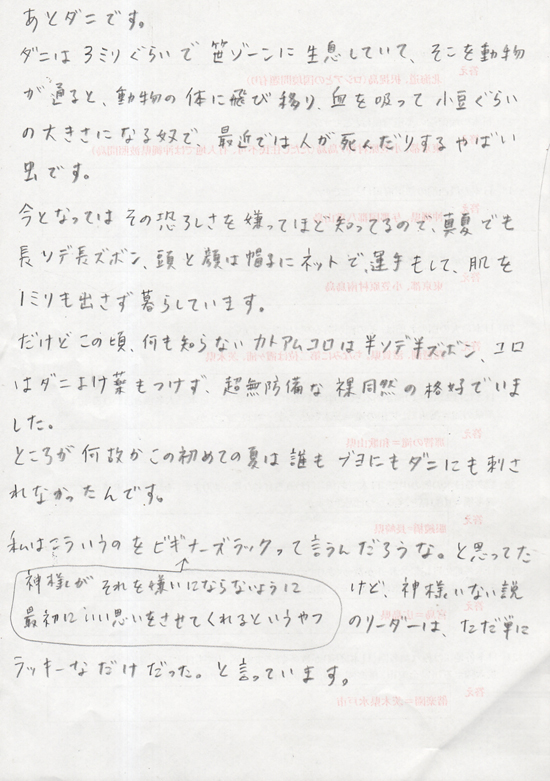 あとダニです。
ダニは3ミリぐらいで笹ゾーンに生息していて、そこを動物
が通ると、動物の体に飛び移り、血を吸って小豆ぐらい
の大きさになる奴で、最近では人が死んだりするやばい
虫です。
今となってはその恐ろしさを嫌ってほど知ってるので、真夏でも
長ソデ長ズボン、頭と顔は帽子にネットで、軍手もして、肌を
1ミリも出さず暮らしています。
だけどこの頃、何も知らないカトアムコロは半ソデ半ズボン、コロ
はダニよけ薬もつけず、超無防備な裸同然の格好でいま
した。
ところが何故かこの初めての夏は誰もブヨにもダニにも刺さ
れなかったんです。
私はこういうのをビギナーズラックって言うんだろうな。と思ってた
神様がそれを嫌いにならないように
最初にいい思いをさせてくれるというやつ
けど、神様いない説
のリーダーは、ただ単に
ラッキーなだけだった。と言っています。